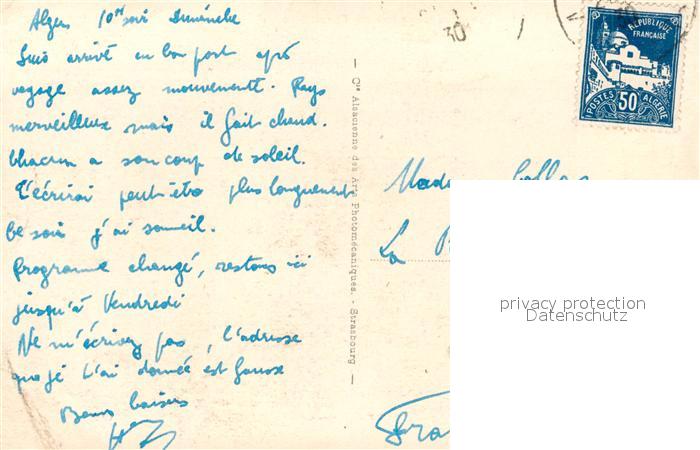 Alger 10h soir Dimanche
Suis arrivé en bon port après
voyage assez mouvementé. Pays
merveilleux mais il fait chaud.
Chacun a son coup de soleil.
T'écrirai peut être plus longuement
Ce soir j'ai sommeil.
Programme changé, restons ici
jusqu'à Vendredi
Ne m'écrivez pas, l'adresse
que je t'ai donnée est fausse
Bons baisers
Cie Alsacienne des Arts Photomécaniques. - Strasbourg
30
RÉPUBLIQUE
FRANÇAISE
POSTES 50c ALGÉRIE
La
privacy protection
Datenschutz